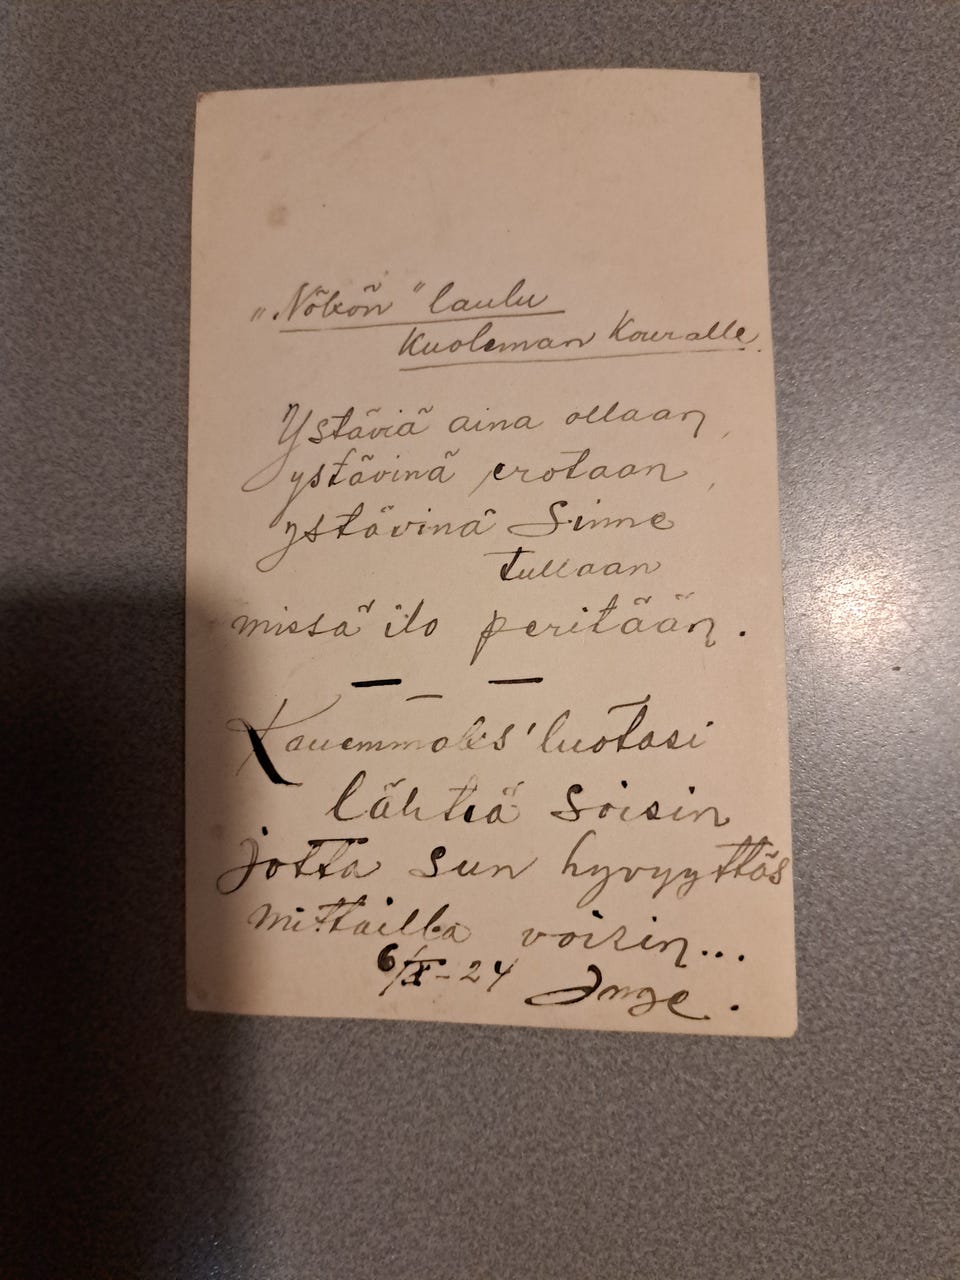 „Nökön" laulu
Kuoleman Kouralle.
Ystäviä aina ollaan,
ystävinä erotaan,
ystävinä Sinne
tullaan
missä ilo peritään.
— – —
Kauemmaks' luotasi
lähteä soisin
jotta sun hyvyyttäs
mittailla voisin...
6/X-24 Inge.